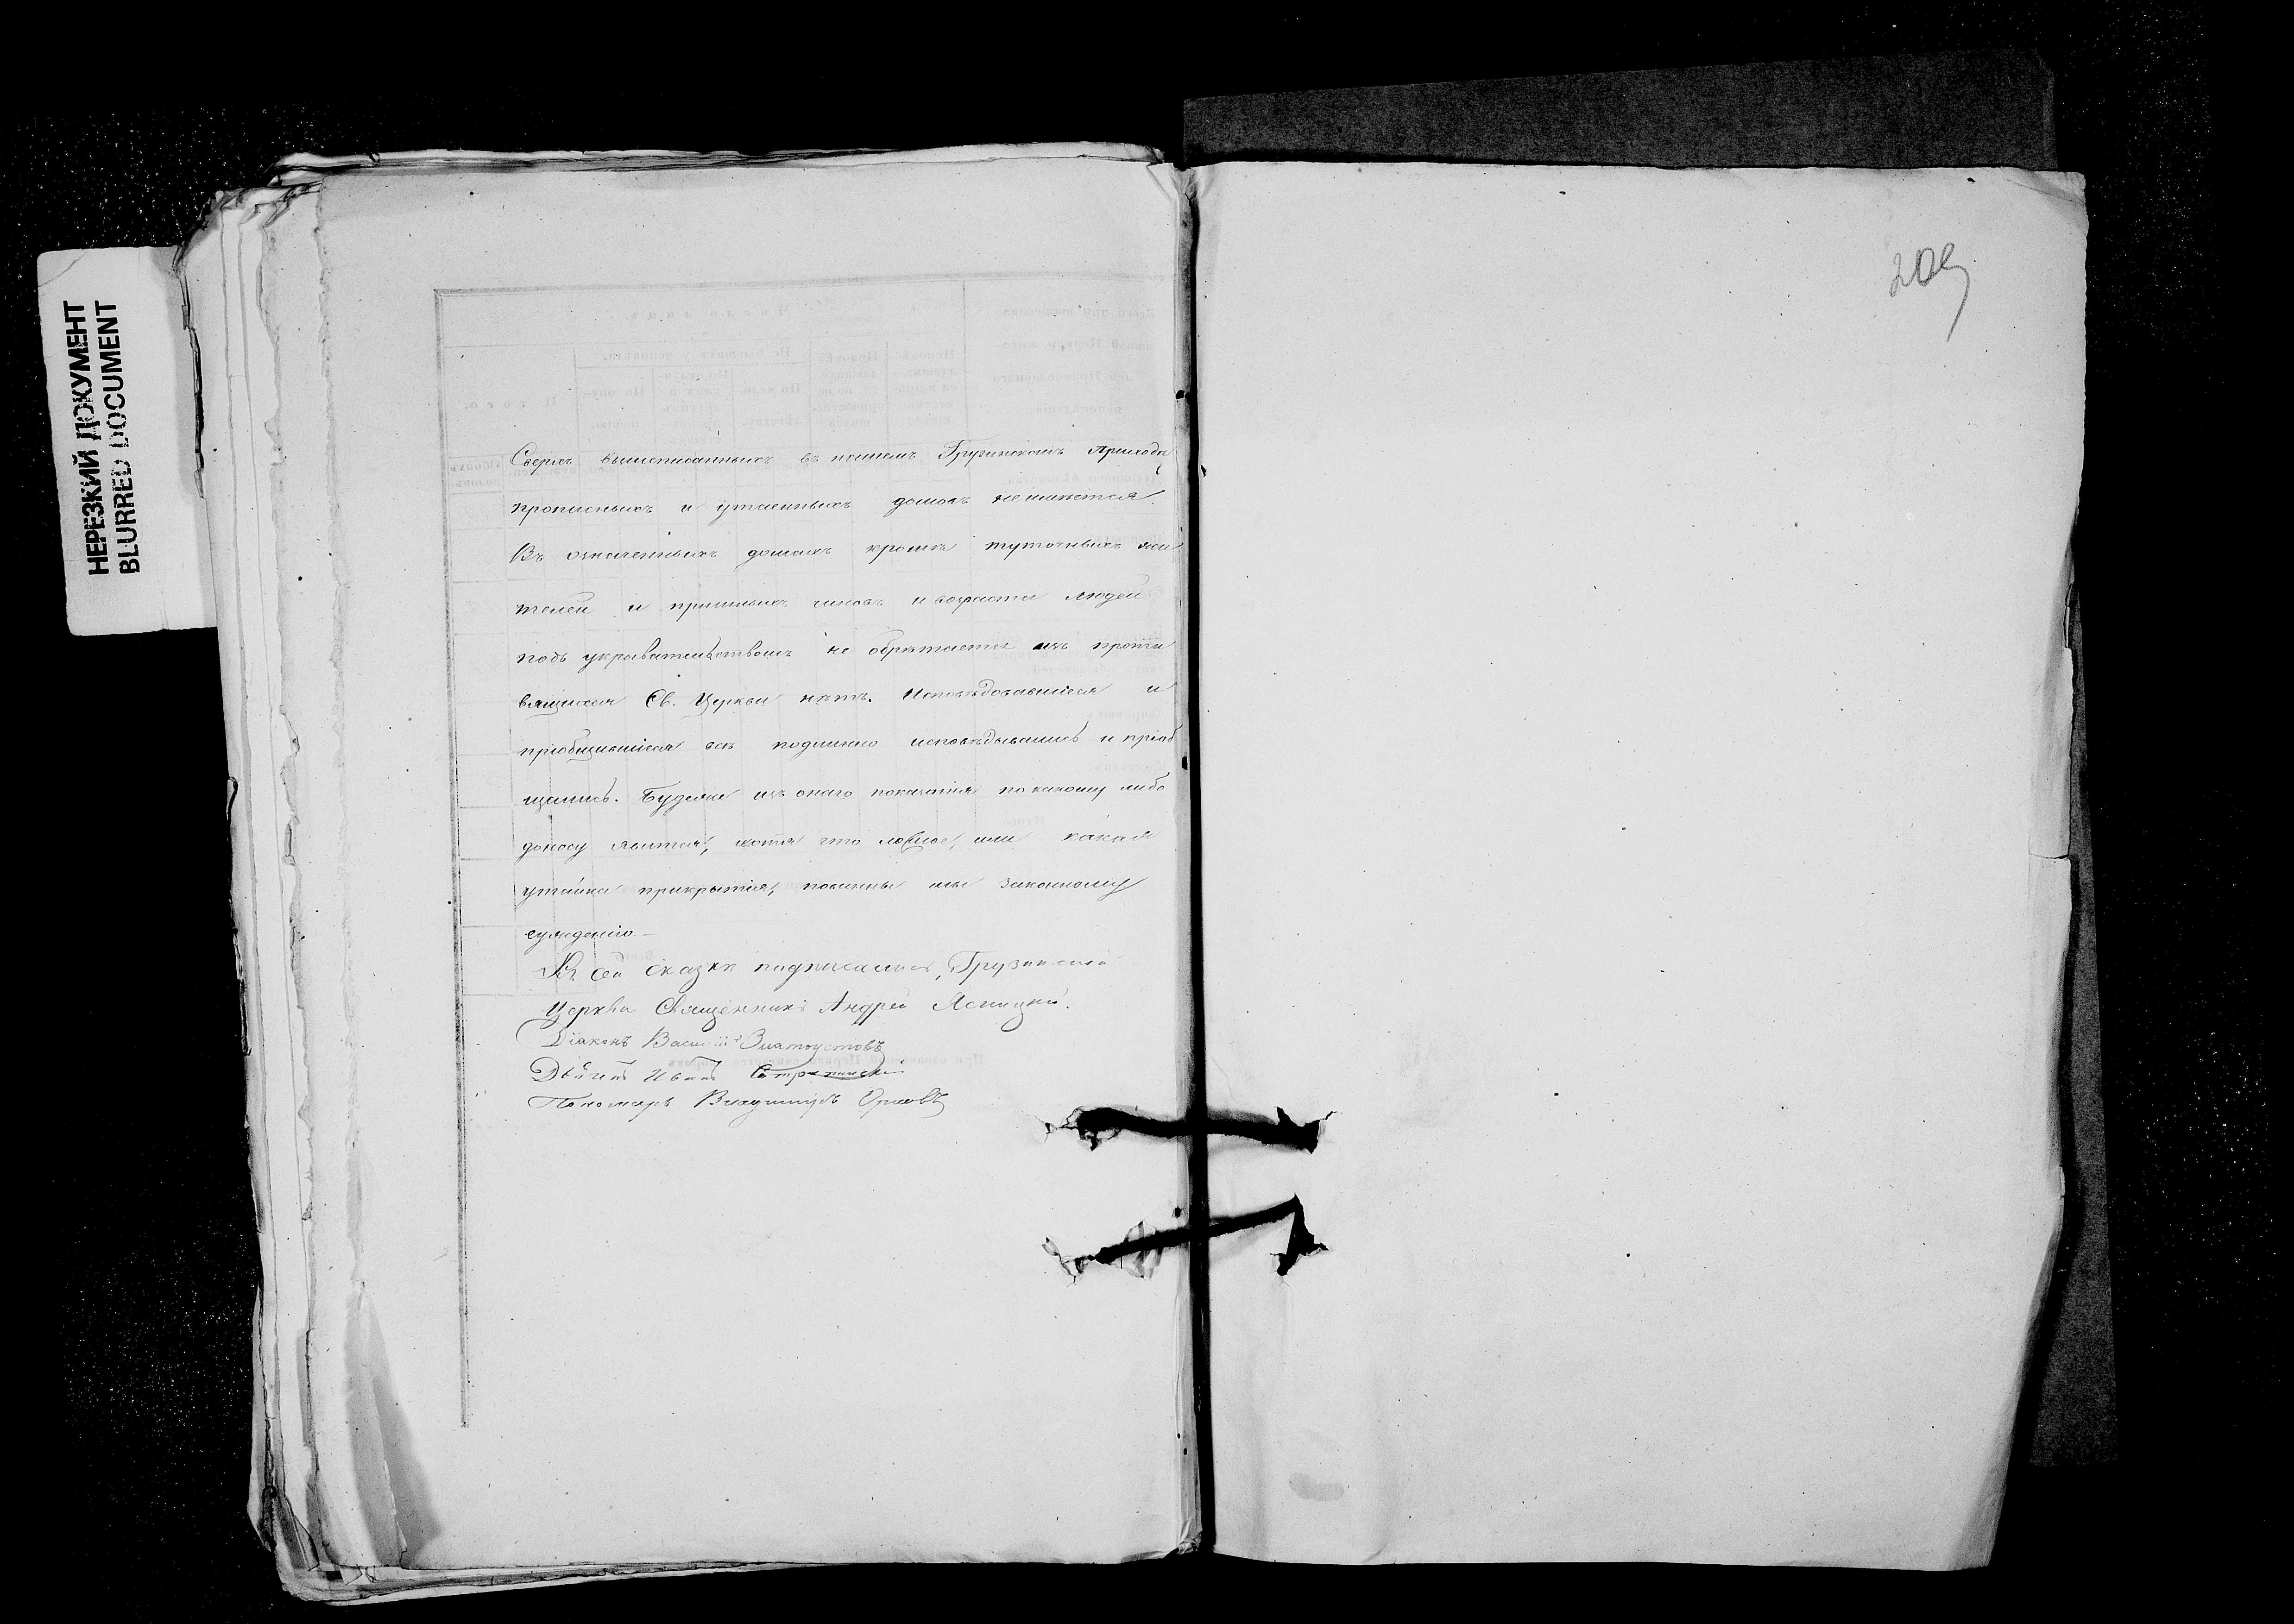 НЕРЕЗКИЙ ДОКУМЕНТ
BLURRED DOCUMENT
209
Сверхъ вышеписанныхъ въ нашемъ Грузинскомъ Приходѣ
прописныхъ и утаенныхъ домовъ не имѣется.
Въ означенныхъ домахъ кромѣ туточныхъ жи
телей и пришлыхъ чиновъ и возраста людей
подъ укрывательствомъ не обрѣтается изъ проти
вящихся Св. Церкви нѣтъ. Исповѣдовавшіеся и
пріобщившіеся всѣ подлинно исповѣдывались и пріоб
щались. Будеже изъ онаго показанія по какому либо
доносу явится, хотя что ложное, или какая
утайка прикрытія, повинны мы законному
сужденію.
Къ сей сказкѣ подписались, Грузинской
Церкви Священникъ Андрей Ясницкій.
Діаконъ Василій Златоустовъ
Дьячекъ Иванъ
Пономарь Владиміръ Орловъ